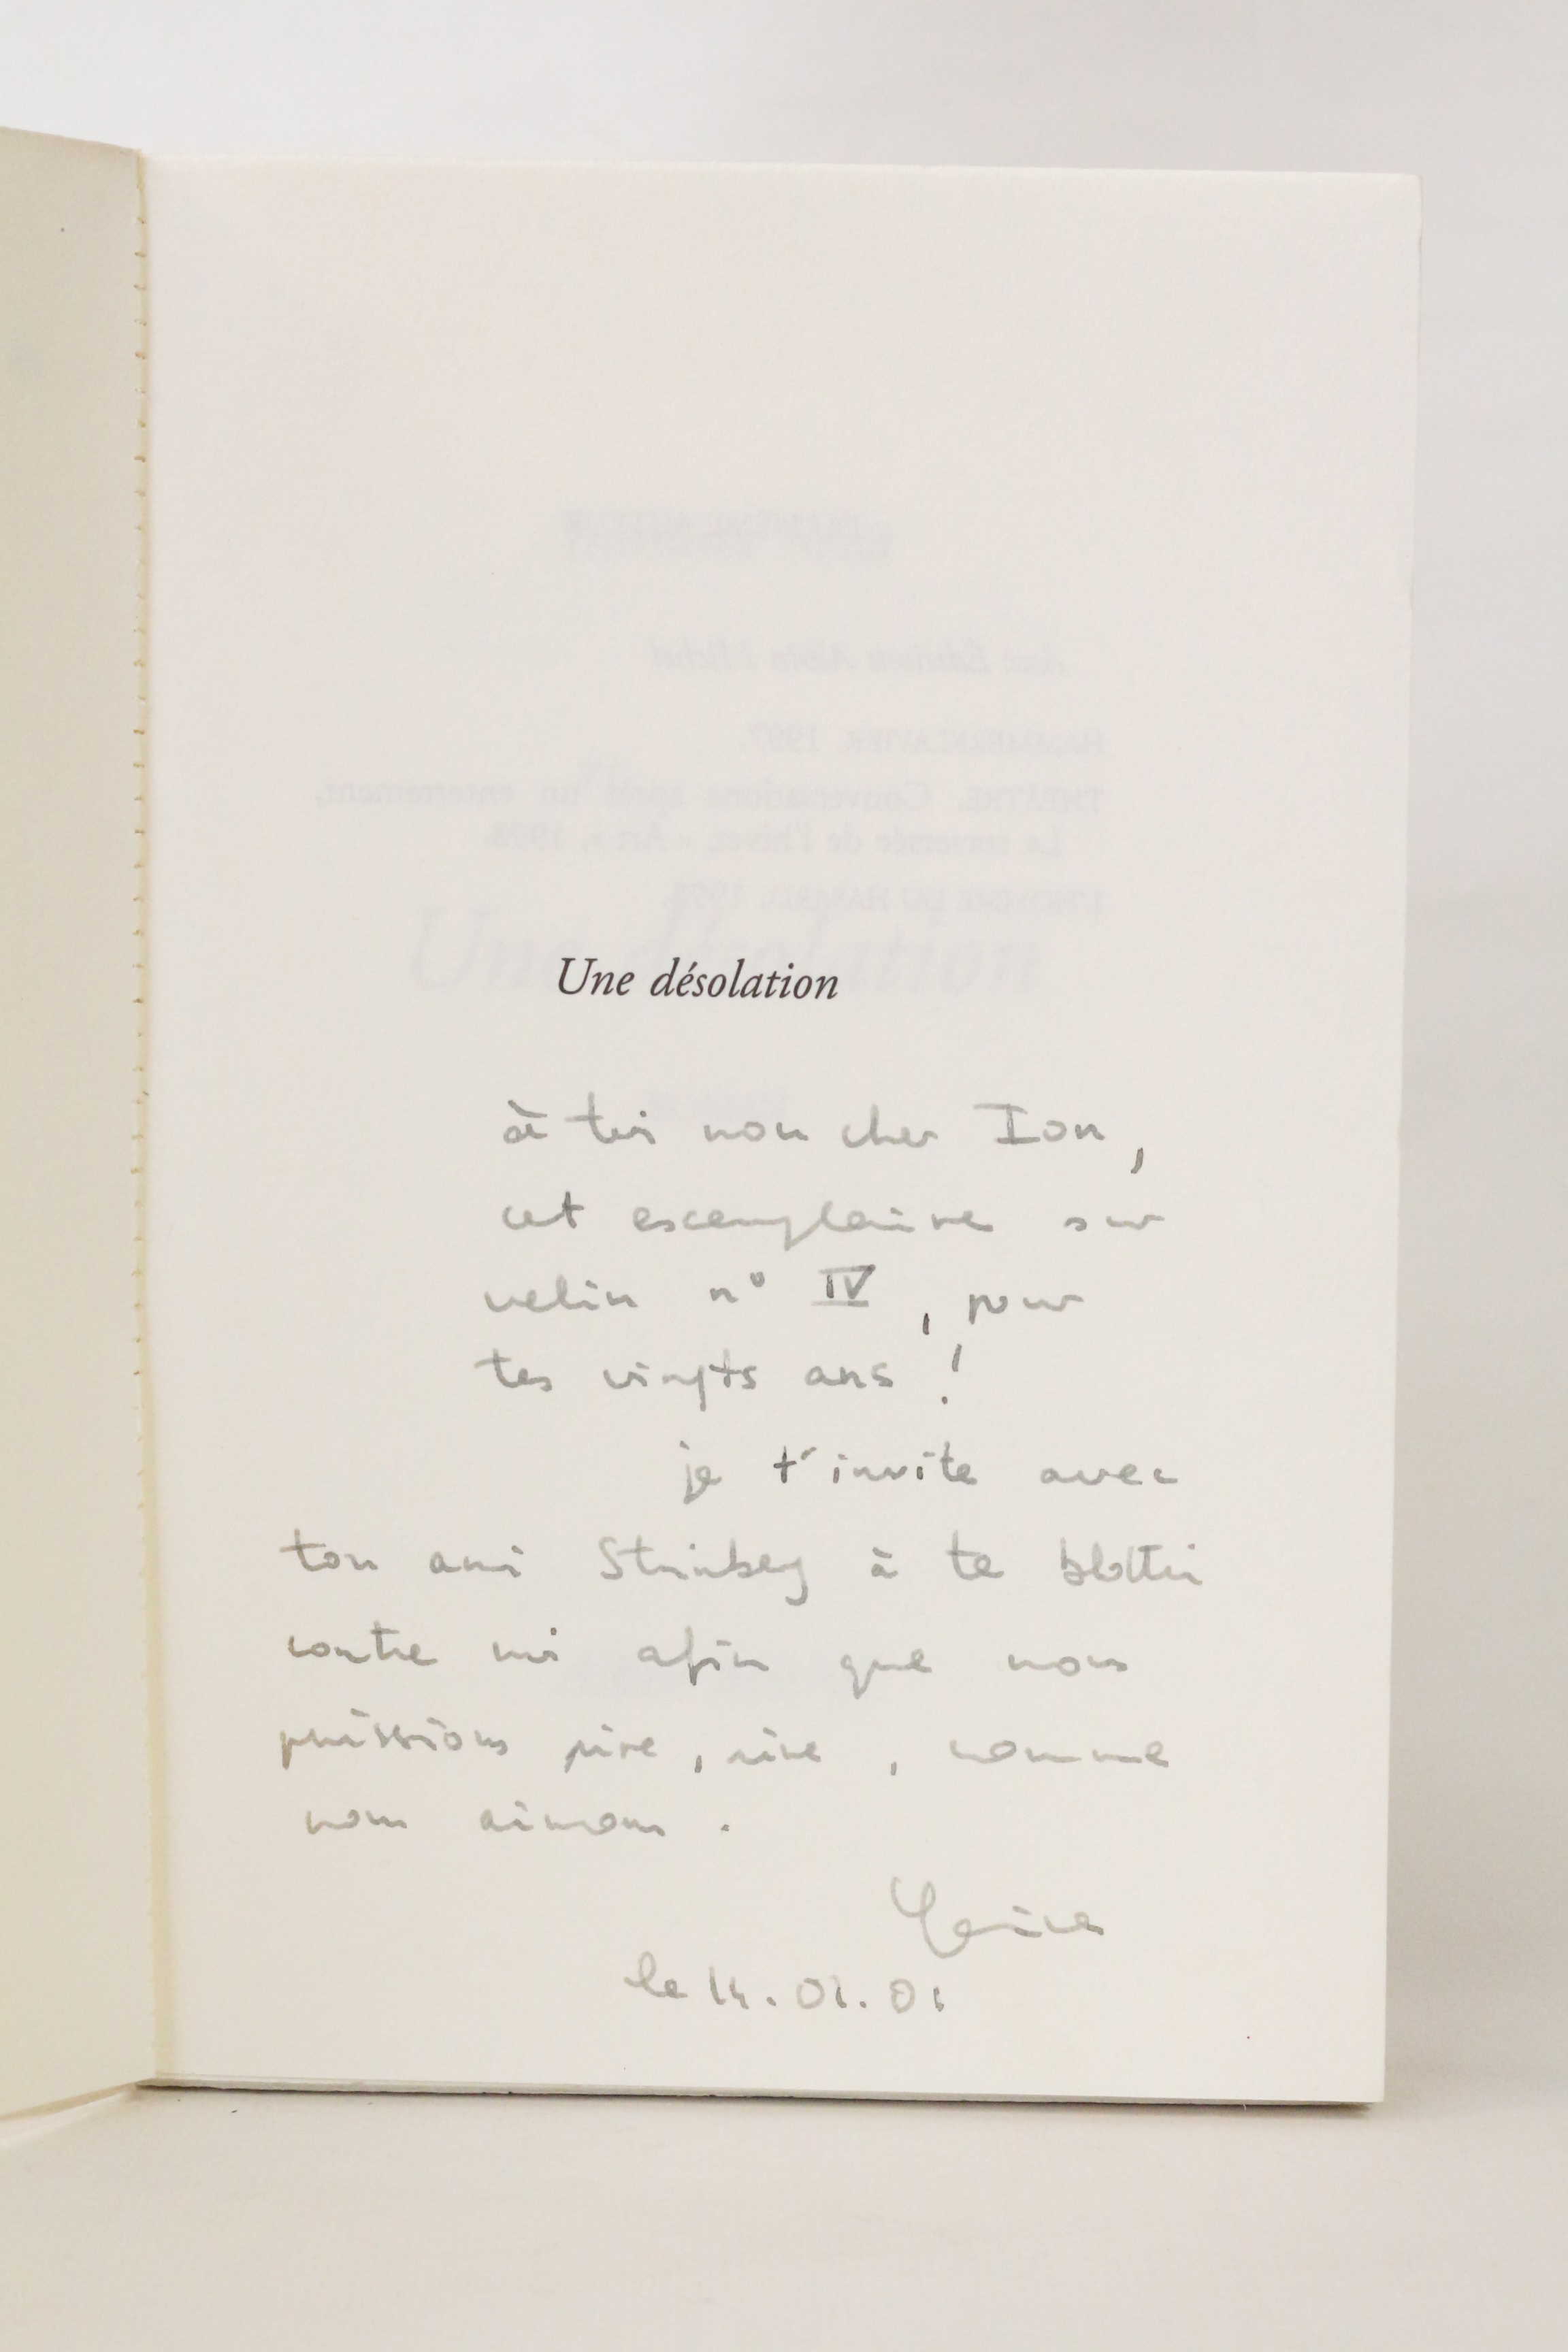 Une désolation
à toi mon cher Ion,
cet excemplaire sur
velin n° IV, pour
tes vingts ans !
je t'invite avec
ton ami à te blottir
contre moi afin que nous
puissions rire, rire, comme
nous aimons.
le 14.01.01